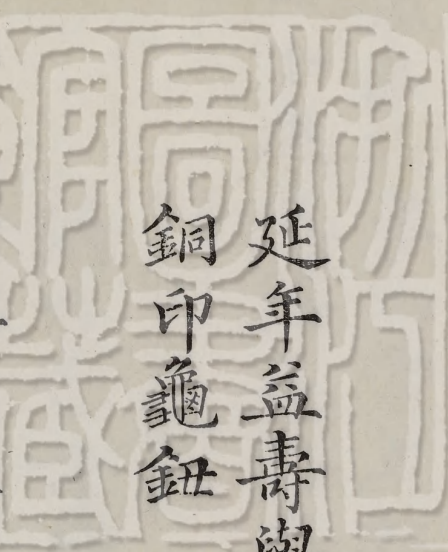 延年益壽
銅印龜鈕